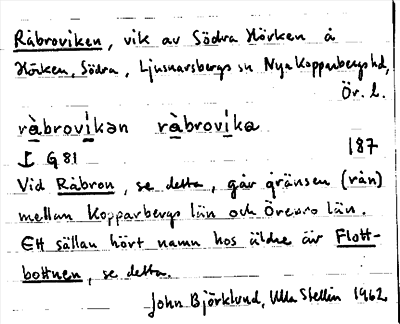 Råbroviken, vik av Södra Hörken å
Hörken, Södra, Ljusnarsbergs sn Nya Kopparbergs hd,
Ör. l.
ràbrovíkən ràbrovíka
G 81 187
Vid Råbron, se detta, går gränsen (rån)
mellan Kopparbergs län och Örebro län.
Ett sällan hört namn hos äldre är Flott-
bottnen, se detta.
John Björklund, Ulla Stellin 1962